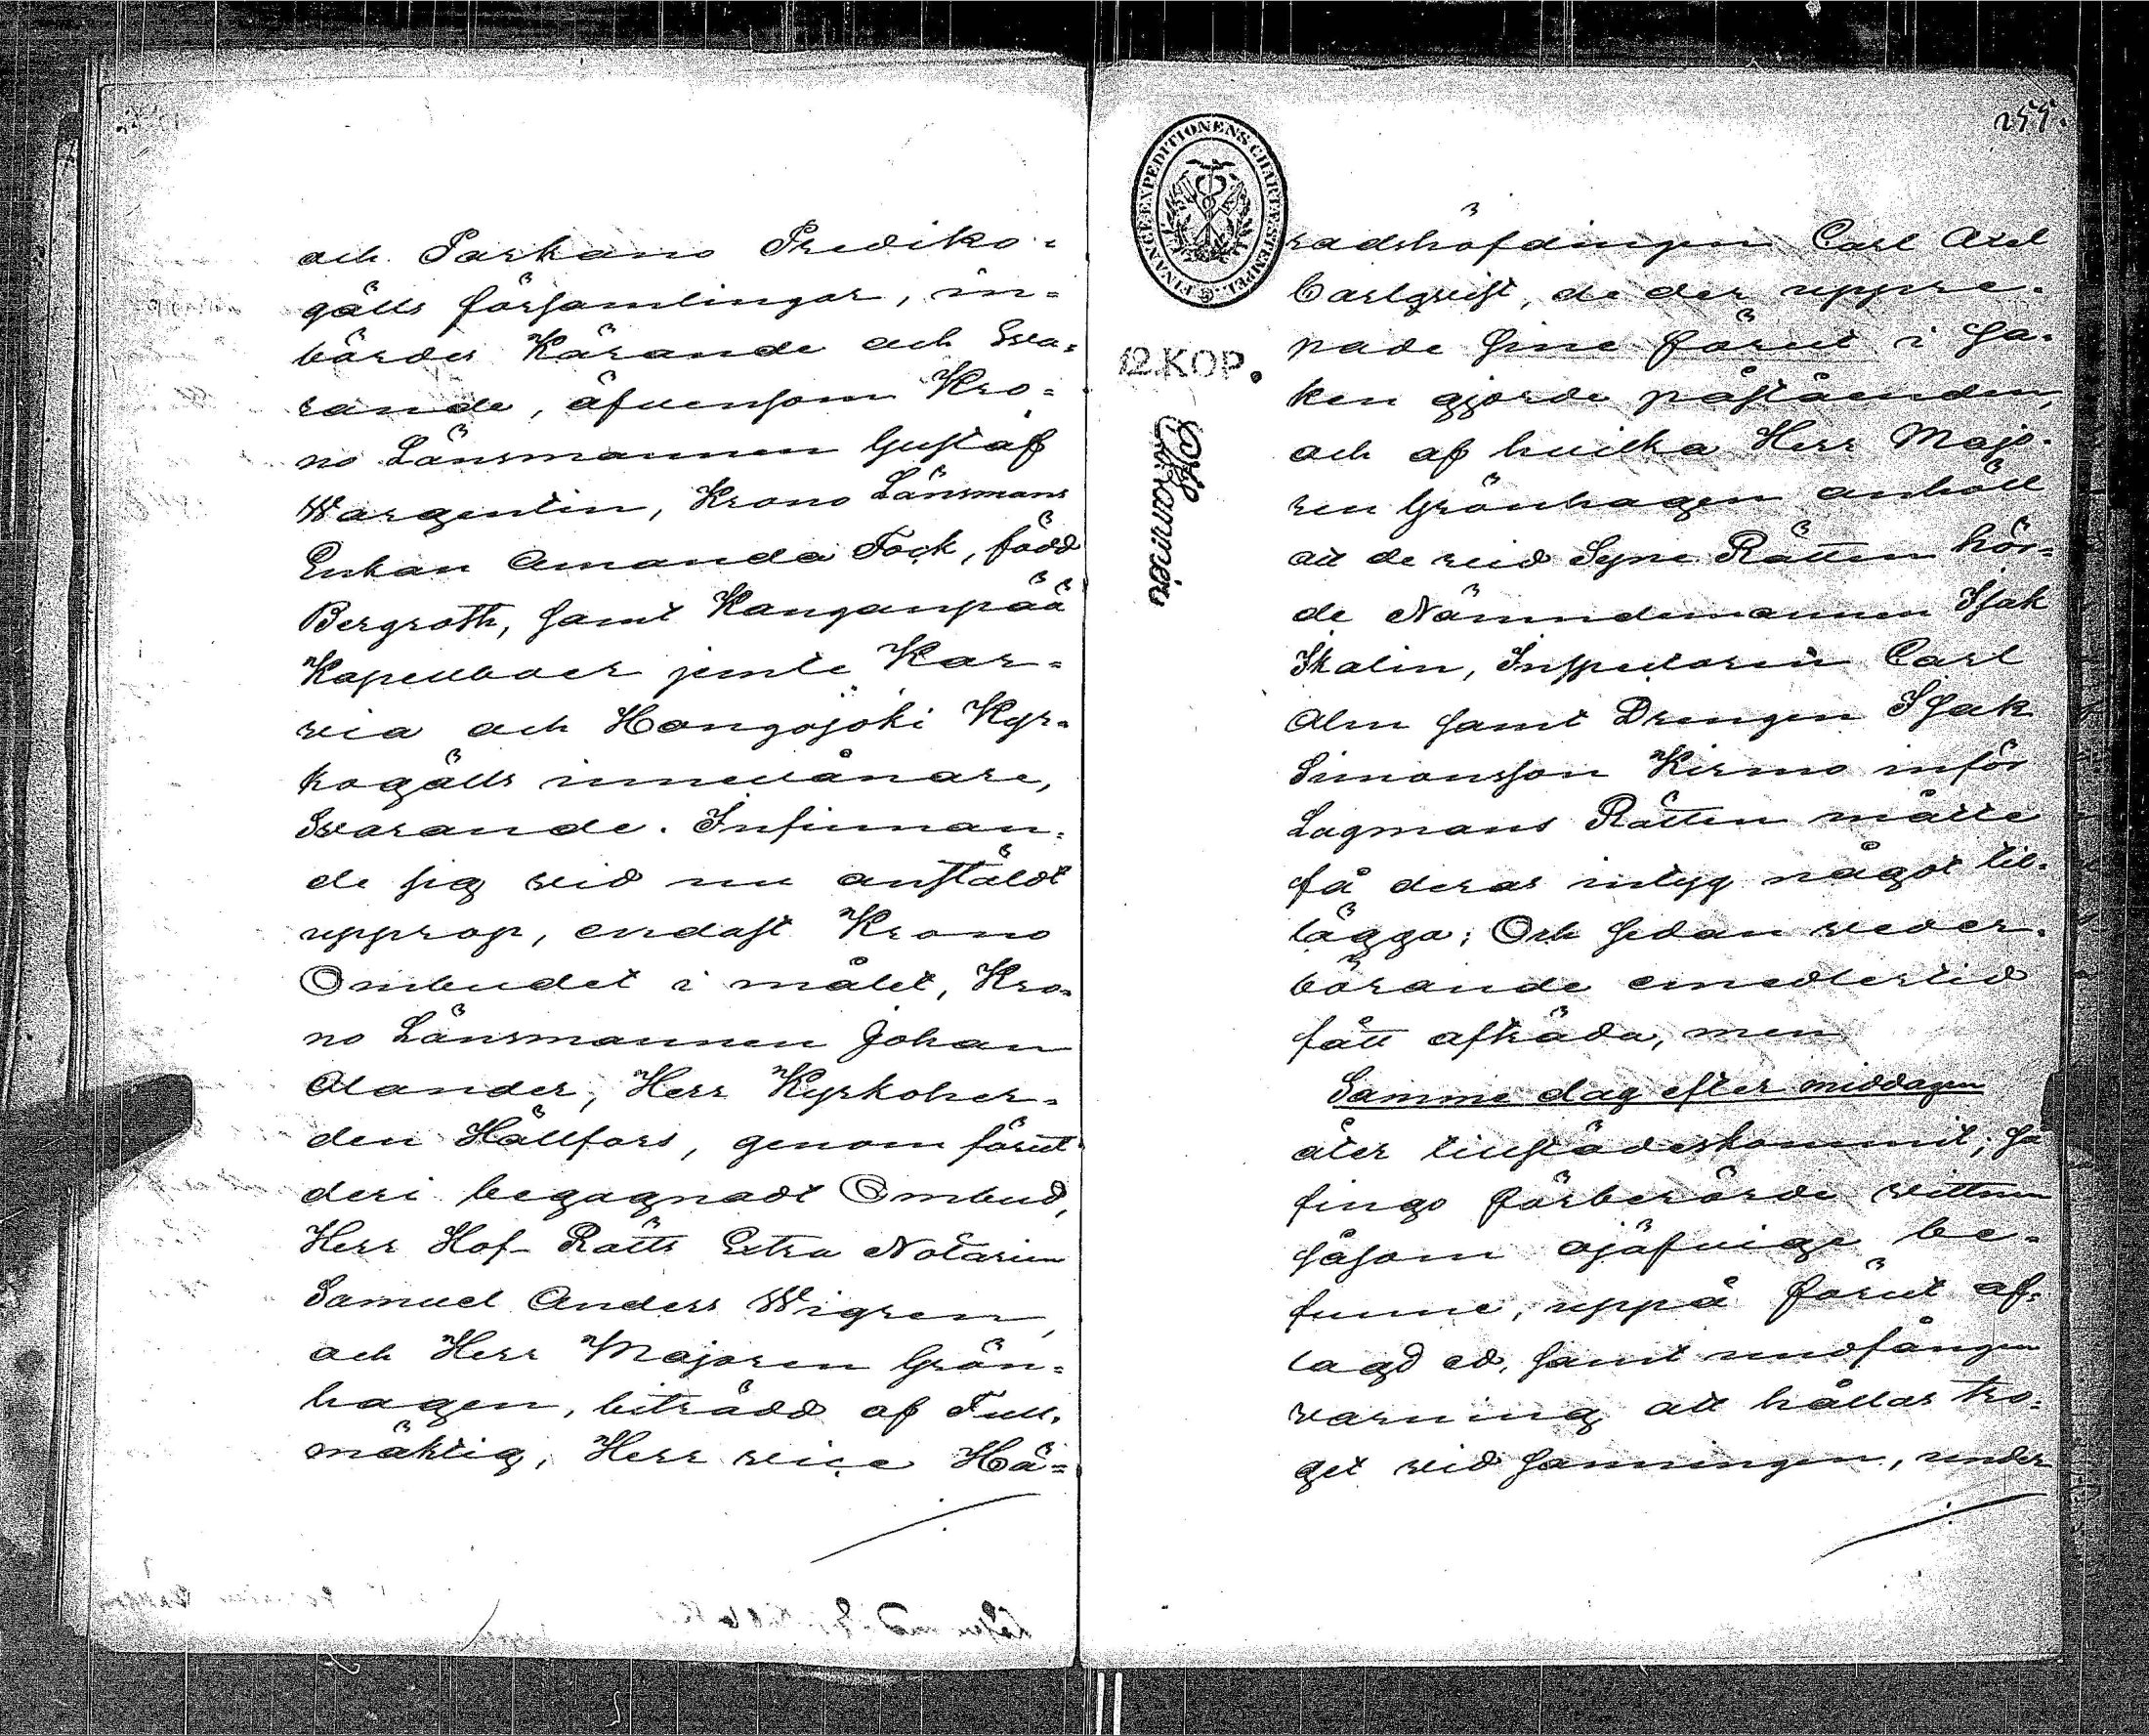 och Parkano Prediko-
gälls församlingar, in-
bördes Kärande och Sva-
rande, äfvensom Kro-
no Länsmannen Gustaf
Wargentin, Krono Länsmans
Enkan Amanda Fock, född
Bergroth, samt Kanganpää
Kapellboer jemte Kar-
via och Hongojoki Kyr-
kogälls innevånare,
Svarande. Infinnan-
de sig vid nu anstäldt
upprop, endast Krono
Ombudet i målet, Kro-
no Länsmannen Johan
Alander, Herr Kyrkoher-
den Hällfors, genom förut
deri begagnadt Ombud,
Herr Hof-Rätts Extra Notarien
Samuel Anders Wigren,
och Herr Majoren Grön-
hagen, biträdd af Full-
mäktig, Herr vice Hä-
257.
FINANCE EXPEDITIONENS CHARTÆ STEMPEL
12.KOP.
radshöfdingen Carl Axel
Carlqvist, de der uppre-
pade sine förut i sa-
ken gjorde påståenden,
och af hvilka Herr Majo-
ren Grönhagen anhöll
att de vid Syne Rätten hör-
de Nämndemannen Isak
Skalin, Inspectoren Carl
Alm samt Drengen Isak
Simonsson Kirmo inför
Lagmans Rätten måtte
få deras intyg något til-
lägga; Och sedan veder-
börande emedlertid
fått afträda, men
Samme dag efter middagen
åter tillstädeskommit; så
fingo förberörde vittnen
såsom ojäfvige be-
funne, uppå förut af-
lagd ed, samt undfången
varning att hållas tro-
get vid sanningen, under